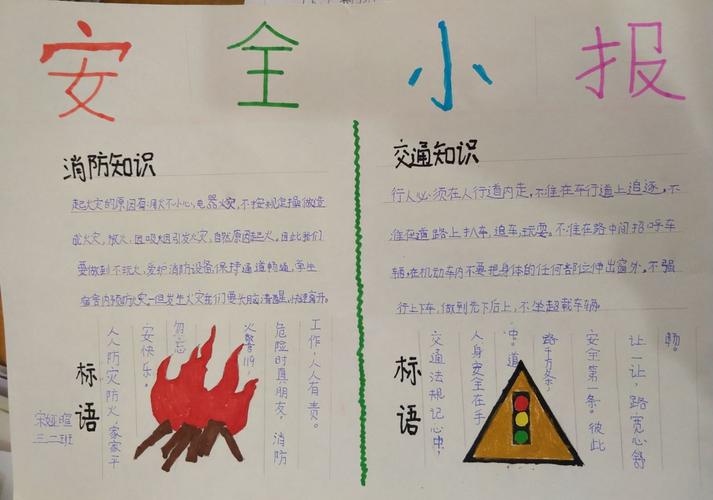 安全小报
消防知识
起火灾的原因有:用火不小心,电器火灾,不按规定操做造
成火灾,放火,因吸烟引发火灾,自然原因起火。因此我们
要做到不玩火,爱护消防设备,保持通道畅通,学生
宿舍内预防火灾一但发生火灾在们要头脑清醒,快速离开。
标语
人人防灾防火,家家平
安快乐。
勿忘
火警119,
危险时真朋友,消防
工作,人人有责。
三二班
交通知识
行人必须在人行道内走,不准在车行道上追逐,不
准在道路上扒车,追车,玩耍。不准在路中间招呼车
辆,在机动车内不要把身体的任何部位伸出窗外。不强
行上下车,做到先下后上,不坐超载车辆。
标语
交通法规记心中,
人身安全在手
中。道
路千万条,
安全第一条。彼此
让一让,路宽心舒
畅。